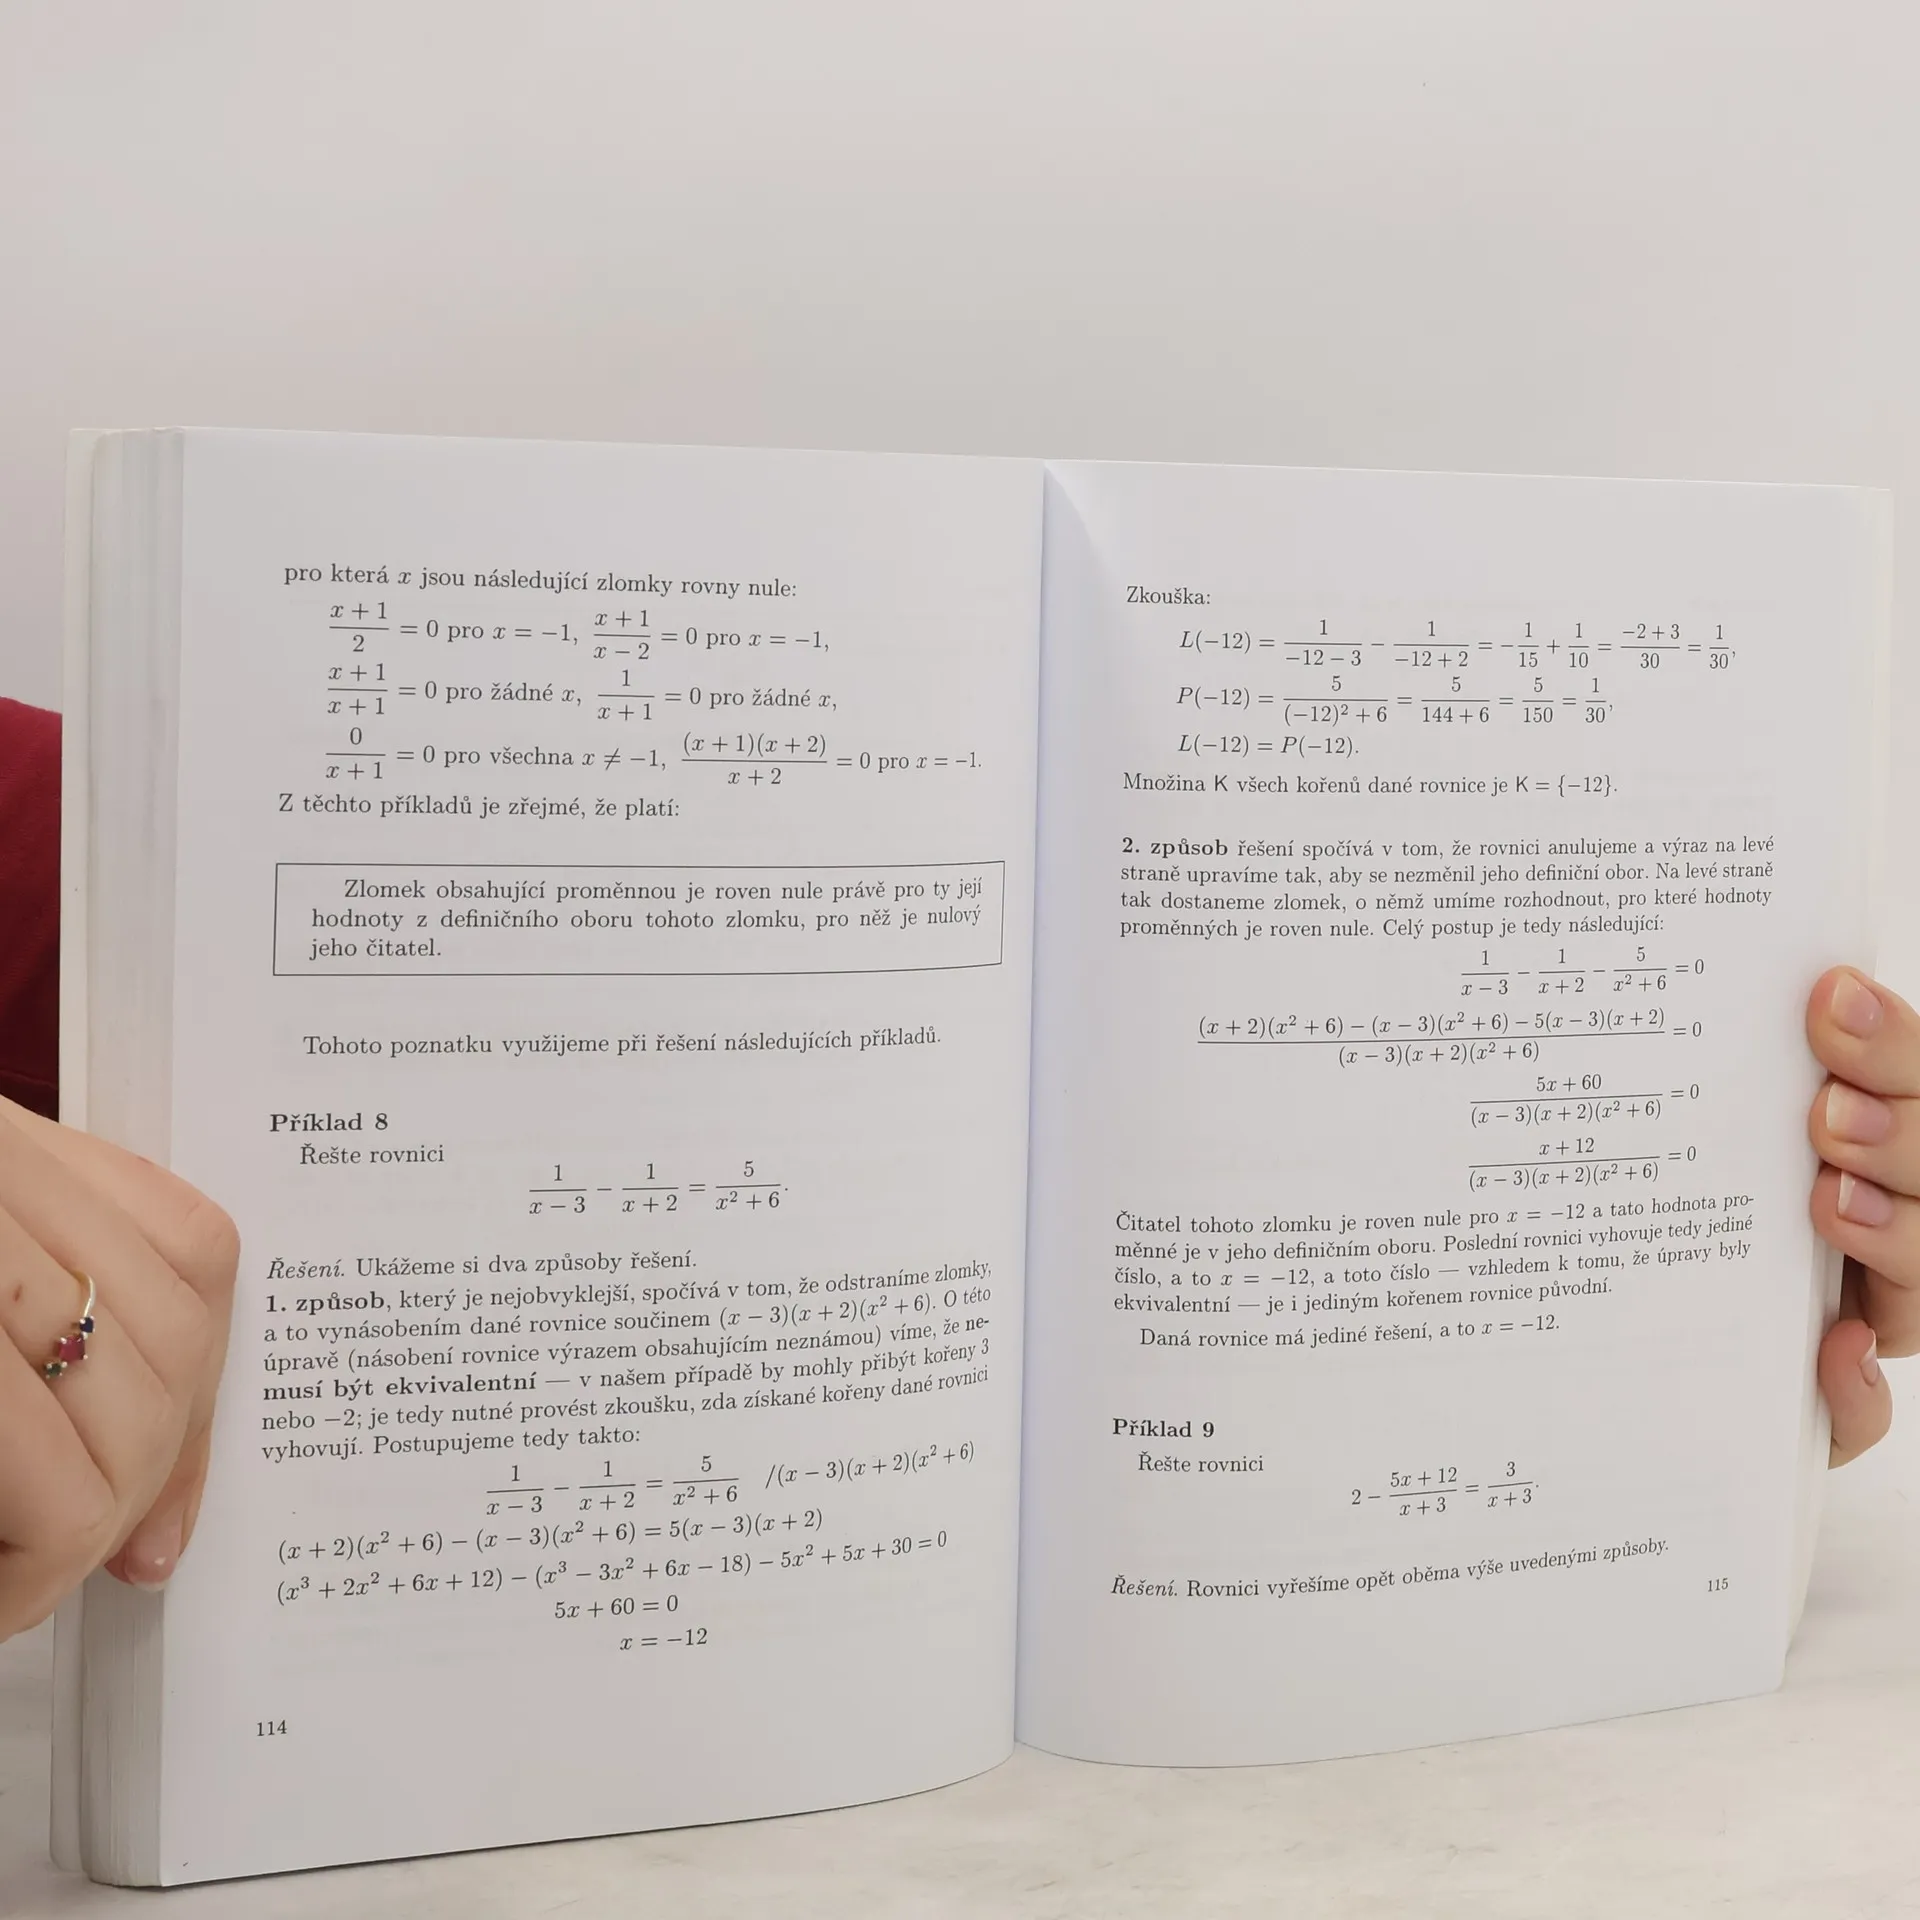 pro která x jsou následující zlomky rovny nule:
(x + 1)/2 = 0 pro x = −1, (x + 1)/(x − 2) = 0 pro x = −1,
(x + 1)/(x + 1) = 0 pro žádné x, 1/(x + 1) = 0 pro žádné x,
0/(x + 1) = 0 pro všechna x ≠ −1, (x + 1)(x + 2)/(x + 2) = 0 pro x = −1.
Z těchto příkladů je zřejmé, že platí:
Zlomek obsahující proměnnou je roven nule právě pro ty její
hodnoty z definičního oboru tohoto zlomku, pro něž je nulový
jeho čitatel.
Tohoto poznatku využijeme při řešení následujících příkladů.
Příklad 8
Řešte rovnici
1/(x − 3) − 1/(x + 2) = 5/(x² + 6).
Řešení. Ukážeme si dva způsoby řešení.
1. způsob, který je nejobvyklejší, spočívá v tom, že odstraníme zlomky,
a to vynásobením dané rovnice součinem (x − 3)(x + 2)(x² + 6). O této
úpravě (násobení rovnice výrazem obsahujícím neznámou) víme, že ne-
musí být ekvivalentní — v našem případě by mohly přibýt kořeny 3
nebo −2; je tedy nutné provést zkoušku, zda získané kořeny dané rovnici
vyhovují. Postupujeme tedy takto:
1/(x − 3) − 1/(x + 2) = 5/(x² + 6) /(x − 3)(x + 2)(x² + 6)
(x + 2)(x² + 6) − (x − 3)(x² + 6) = 5(x − 3)(x + 2)
(x³ + 2x² + 6x + 12) − (x³ − 3x² + 6x − 18) − 5x² + 5x + 30 = 0
5x + 60 = 0
x = −12
114
Zkouška:
L(−12) = 1/(−12 − 3) − 1/(−12 + 2) = −1/15 + 1/10 = (−2 + 3)/30 = 1/30,
P(−12) = 5/((−12)² + 6) = 5/(144 + 6) = 5/150 = 1/30,
L(−12) = P(−12).
Množina K všech kořenů dané rovnice je K = {−12}.
2. způsob řešení spočívá v tom, že rovnici anulujeme a výraz na levé
straně upravíme tak, aby se nezměnil jeho definiční obor. Na levé straně
tak dostaneme zlomek, o němž umíme rozhodnout, pro které hodnoty
proměnných je roven nule. Celý postup je tedy následující:
1/(x − 3) − 1/(x + 2) − 5/(x² + 6) = 0
((x + 2)(x² + 6) − (x − 3)(x² + 6) − 5(x − 3)(x + 2))/((x − 3)(x + 2)(x² + 6)) = 0
(5x + 60)/((x − 3)(x + 2)(x² + 6)) = 0
(x + 12)/((x − 3)(x + 2)(x² + 6)) = 0
Čitatel tohoto zlomku je roven nule pro x = −12 a tato hodnota pro-
měnné je v jeho definičním oboru. Poslední rovnici vyhovuje tedy jediné
číslo, a to x = −12, a toto číslo — vzhledem k tomu, že úpravy byly
ekvivalentní — je i jediným kořenem rovnice původní.
Daná rovnice má jediné řešení, a to x = −12.
Příklad 9
Řešte rovnici
2 − (5x + 12)/(x + 3) = 3/(x + 3).
Řešení. Rovnici vyřešíme opět oběma výše uvedenými způsoby.
115